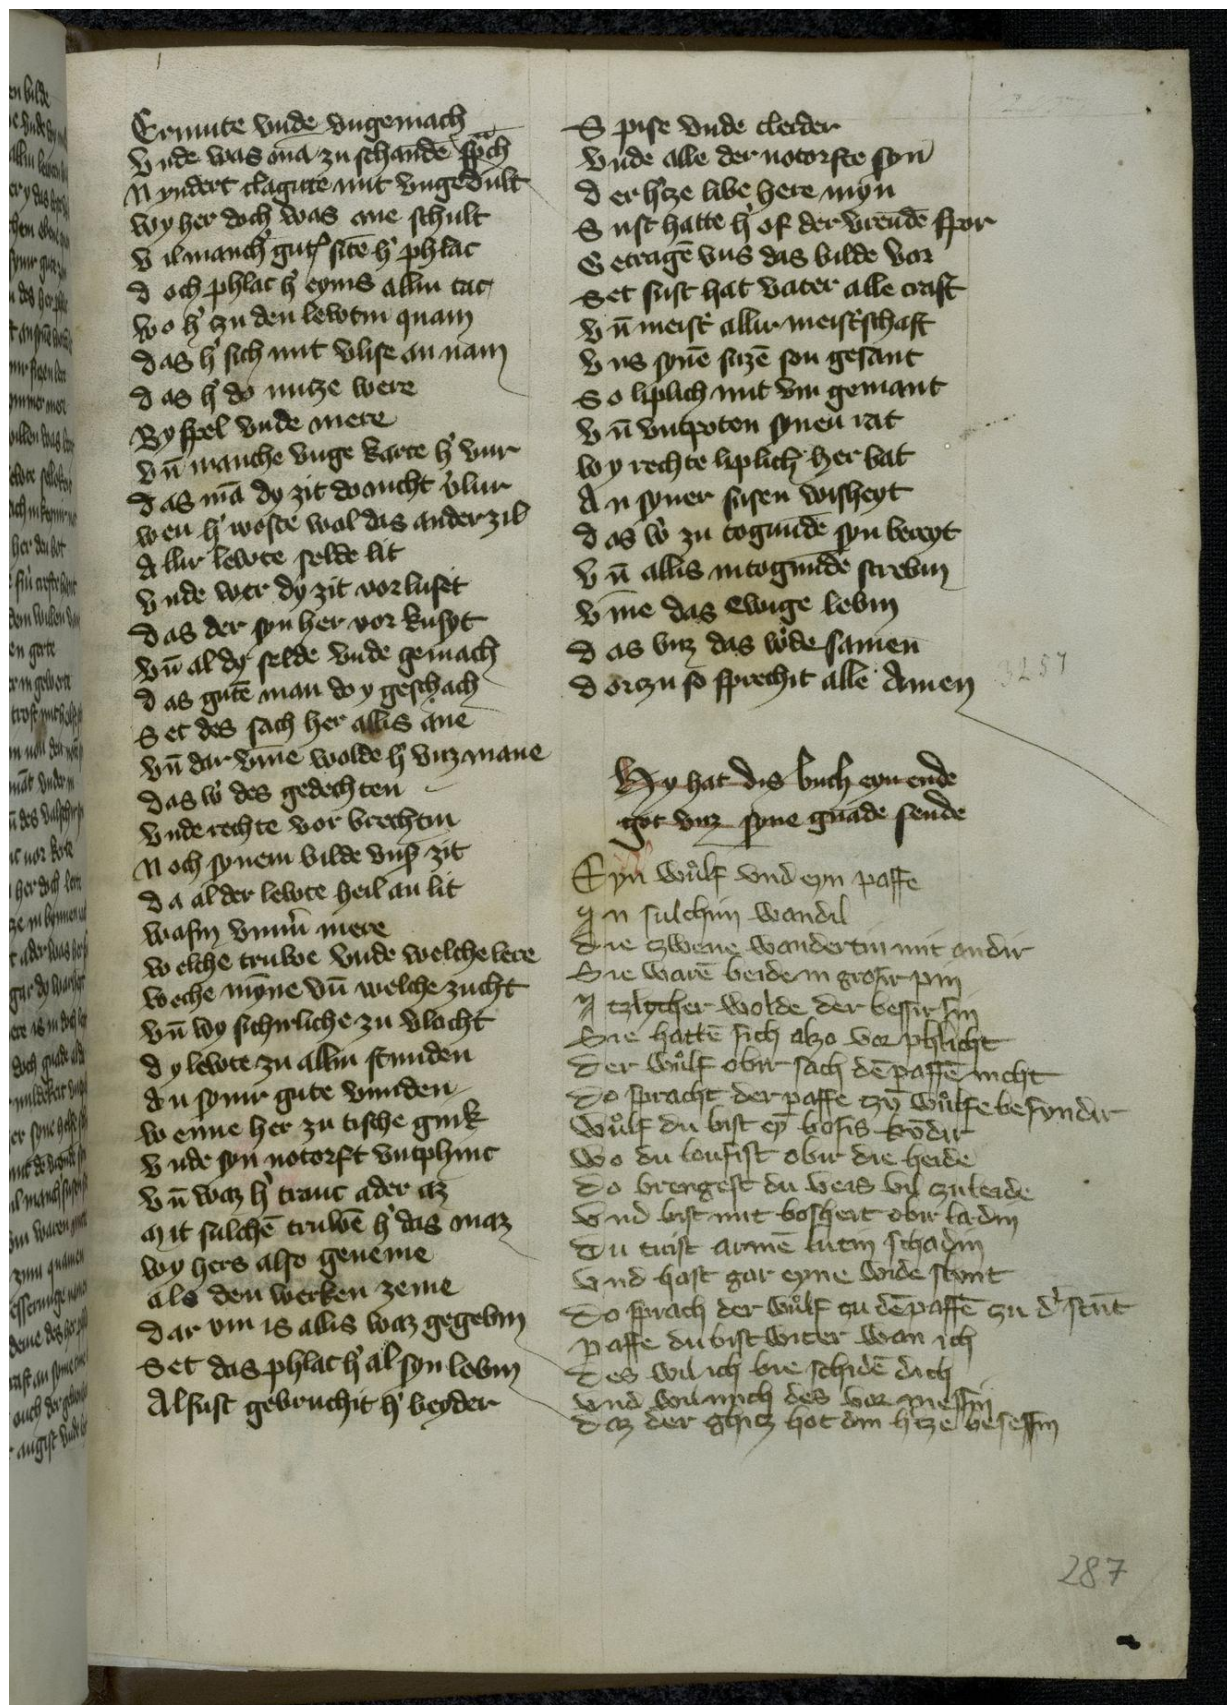 Ermute vnde vngemach
Vnde was mā zu schandē spͣch
Nyndert clagete mit vngedult
Wy her doch was ane schult
Vil manch' gut' sitē h' phlac
Doch phlac h' eyms allin tac
Wo h' zu den lewtin quam
Das h' sich mit vlise an nam
Das h' do nutze were
Byspel vnde mere
Vn̄ manche vuge karte h' vur
Das mā dy zit do nicht v'lur
Wen h' woste wol das ander zil
Allir lewte selde lit
Vnde wer dy zit vorluset
Das der syn her vorkusyt
Vn̄ al dy selde vnde gemach
Das gutē man do y geschach
Set des sach her allis ane
Vn̄ dar vm̄e wolde h' vnz mane
Das w' des gedechten
Vnde rechte vorbrechtin
Noch synem bilde vns' zit
Da al der lewte heil an lit
Wafin vmm' mere
Welche truwe vnde welche lere
Weche myn̄e vn̄ welche zucht
Vn̄ wy sichirliche zu vlucht
Dy lewte zu allin stunden
An synir gute vunden
Wenne her zu tische gink
Vnde syn notorft vntphinc
Vn̄ waz h' tranc ader az
Mit sulchē truwē h' das maz
Wy hers also geneme
Als den werken zeme
Dar vm is allis waz gegebin
Set das phlac h' al syn lebin
Alsust gebruchit h' beyder
Spise vnde cleider
Vnde alle der notorfte syn
Der h'tze libe here myn
Sust hatte h' of der vrendē spor
Getragē vns das bilde vor
Set sust hat vater alle craft
Vn̄ meist' allir meist'schaft
Vns synē suzē son gesant
So liplich mit vm gemant
Vn̄ vntpoten synen rat
Wy rechte liplich her bat
An syner susen wisheyt
Das w' zu togundē syn bereyt
Vn̄ allis in togundē strebin
Vm̄e das ewige lebin
Das vnz das w'de samen
Dorczu so sprechit alle Amen
3257
Hy hat dis buch eyn ende
got vnz syne gnade sende
Eyn wůlf vnd eyn paffe
In sulchin wandil
Die tzwene wandertin mit andir
Sie warē beide in grosir pin
Itzlicher wolde der bessir sin
Sie hattē sich alzo vor phlicht
Der wůlf obir sach dē paffē nicht
Do spracht der paffe tzū wůlfe besyndir
Wůlf du bist eȳ bosis kōdir
Wo du loufist obir die heide
Do brengest du veis vil zu leide
Vnd bist mit bosheit obir ladin
Du tuist armē lutin schadin
Vnd hast gar eyne wide slunt
Do sprach der wůlf zu dē paffē zu d' stūt
Paffe du bist witer wan ich
Des wil ich bie schidē dich
Vnd wil mich des vor messin
Daz der ghitz hot din h'tze besessin
287